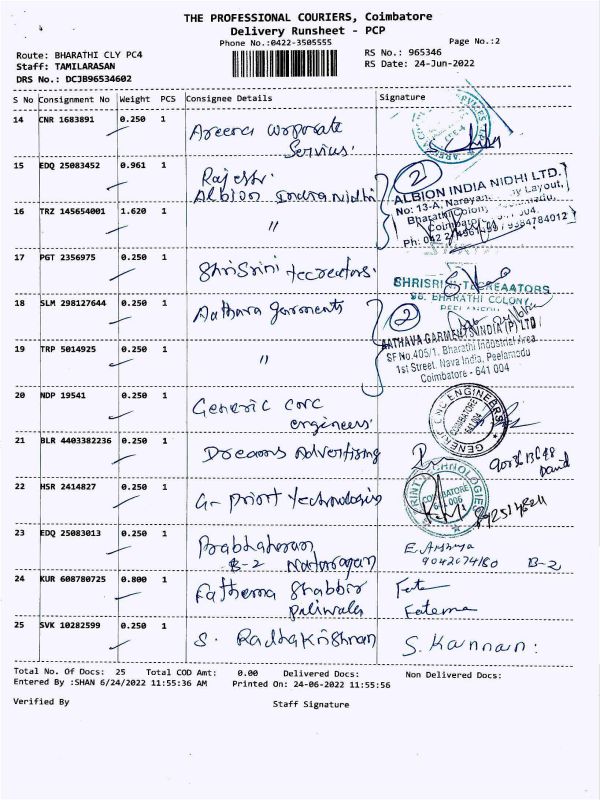 THE PROFESSIONAL COURIERS, Coimbatore
Delivery Runsheet - PCP
Phone No.:0422-3505555
Page No.:2
Route: BHARATHI CLY PC4
RS No.: 965346
Staff: TAMILARASAN
RS Date: 24-Jun-2022
DRS No.: DCJB96534602
S No Consignment No Weight PCS Consignee Details Signature
14 CNR 1683891 0.250 1 Areera Corporate
Services.
15 EDQ 25083452 0.961 1 Rajesh.
Albion India Nidhi
2
ALBION INDIA NIDHI LTD.
No: 13-A, Narayan Layout,
Bharathi Colony,
Coimbatore
16 TRZ 145654001 1.620 1 "
17 PGT 2356975 0.250 1 ShriSrini tecreators.
SHRISRI
BHARATHI COLONY,
18 SLM 298127644 0.250 1 Aathava garments
2
AATHAVA GARMENTS INDIA (P) LTD
19 TRP 5014925 0.250 1 "
SF No.405/1, Bharathi Industrial Area
1st Street, Nava India, Peelamedu
Coimbatore - 641 004
20 NDP 19541 0.250 1 Generic cnc
engineers.
GENERIC CNC ENGINEERS
COIMBATORE
641 004
21 BLR 4403382236 0.250 1 Dreams Advertising
22 HSR 2414827 0.250 1 G- Print Technologies
PRINT TECHNOLOGIES
COIMBATORE
23 EDQ 25083013 0.250 1 Prabhaharan
B-2 Natarajan
9042074180 B-2
24 KUR 608780725 0.800 1 Fathema Shabbir
paliwala
Fatema
25 SVK 10282599 0.250 1 S. Radhakrishnan
S. Kannan.
Total No. Of Docs: 25 Total COD Amt: 0.00 Delivered Docs: Non Delivered Docs:
Entered By :SHAN 6/24/2022 11:55:36 AM Printed On: 24-06-2022 11:55:56
Verified By Staff Signature